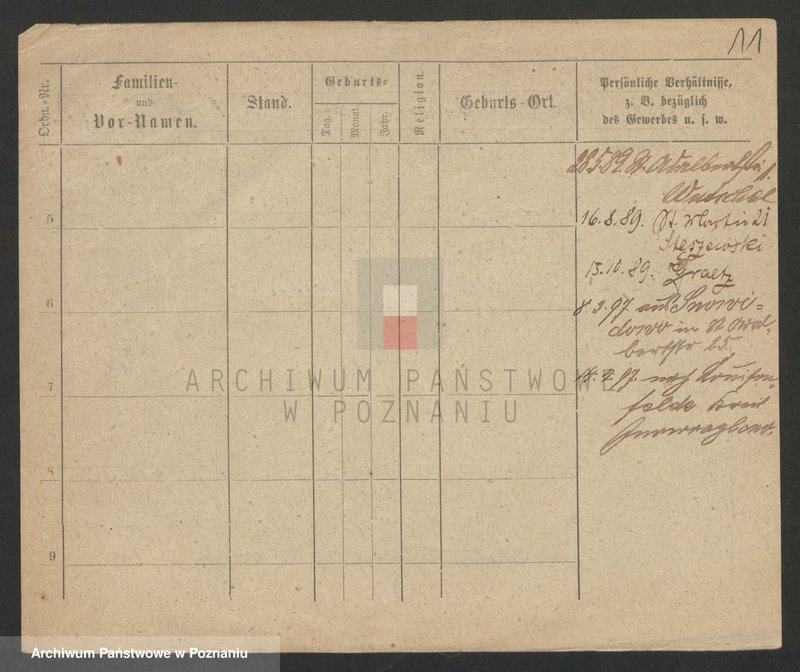 11
Ordn.-Nr.
Familien-
und
Vor-Namen.
Stand.
Geburts-
Tag.
Monat.
Jahr.
Religion.
Geburts-Ort.
Persönliche Verhältnisse,
z. B. bezüglich
des Gewerbes u. s. w.
28 5 89. St Adalbertstr
16. 8. 89. St. Martin 21
5
Stęszewski
15. 10. 89. Graetz
6
8. 3. 97. aus Snowi-
dowo in St Adal-
bertstr 25.
7
97. nach Louisen-
felde Kreis
Inowrazlaw.
8
9
ARCHIWUM PAŃSTWOWE
W POZNANIU
Archiwum Państwowe w Poznaniu